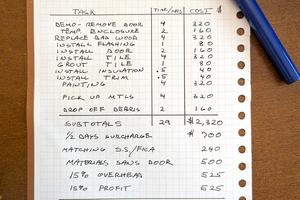 TASK TIME/HRS COST $
DEMO-REMOVE DOOR 4 320
TEMP. ENCLOSURE 2 160
REPLACE BAD WOOD 4 320
INSTALL FLASHING 1 80
INSTALL DOOR 2 160
INSTALL TILE 4 320
GROUT TILE 1 80
INSTALL INSULATION .5 40
INSTALL TRIM .5 40
PAINTING 4 320
PICK UP MTLS 4 320
DROP OFF DEBRIS 2 160
SUBTOTALS 29 $2,320
1/2 DAYS SURCHARGE $ 700
MATCHING S.S./FICA 240
MATERIALS SANS DOOR 500
15% OVERHEAD 525
15% PROFIT 525